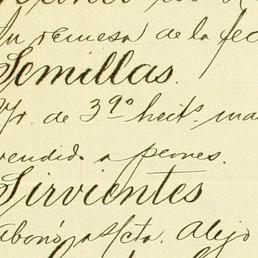 Su remesa de la fec
Semillas.
Yr. de 39º hects. ma
vendido a peones.
Sirvientes
abonó a/cta. Alejo